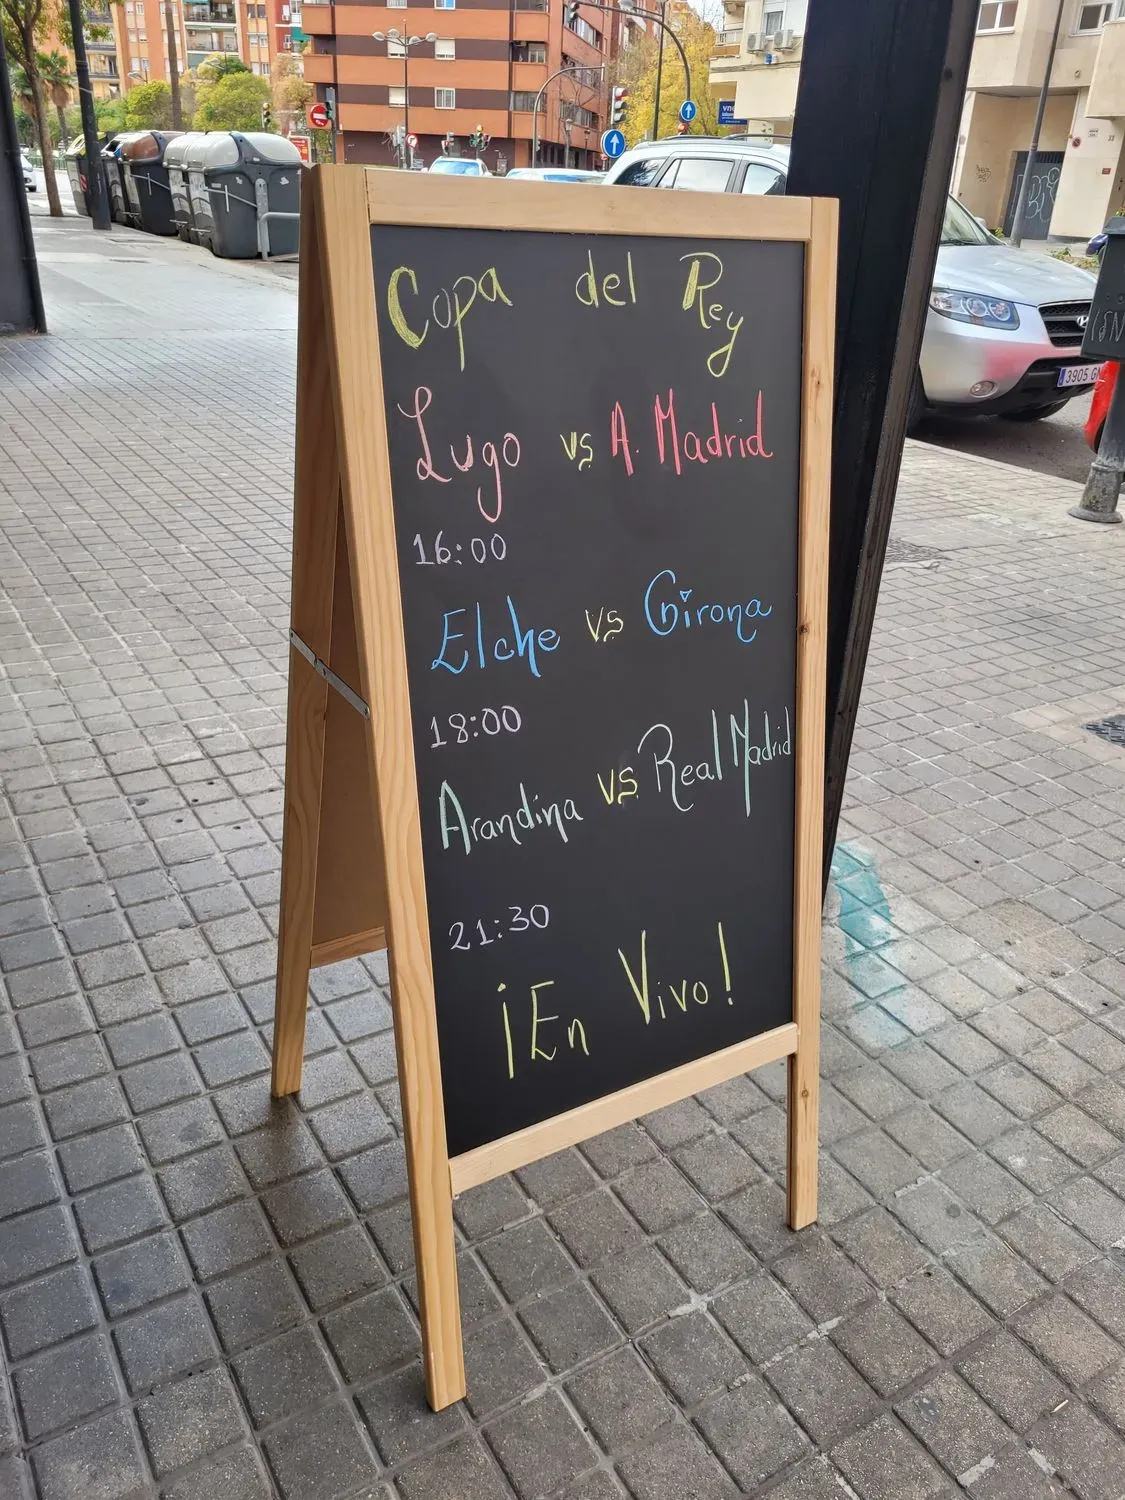 Copa del Rey
Lugo vs A. Madrid
16:00
Elche vs Girona
18:00
Arandina vs Real Madrid
21:30
¡En Vivo!